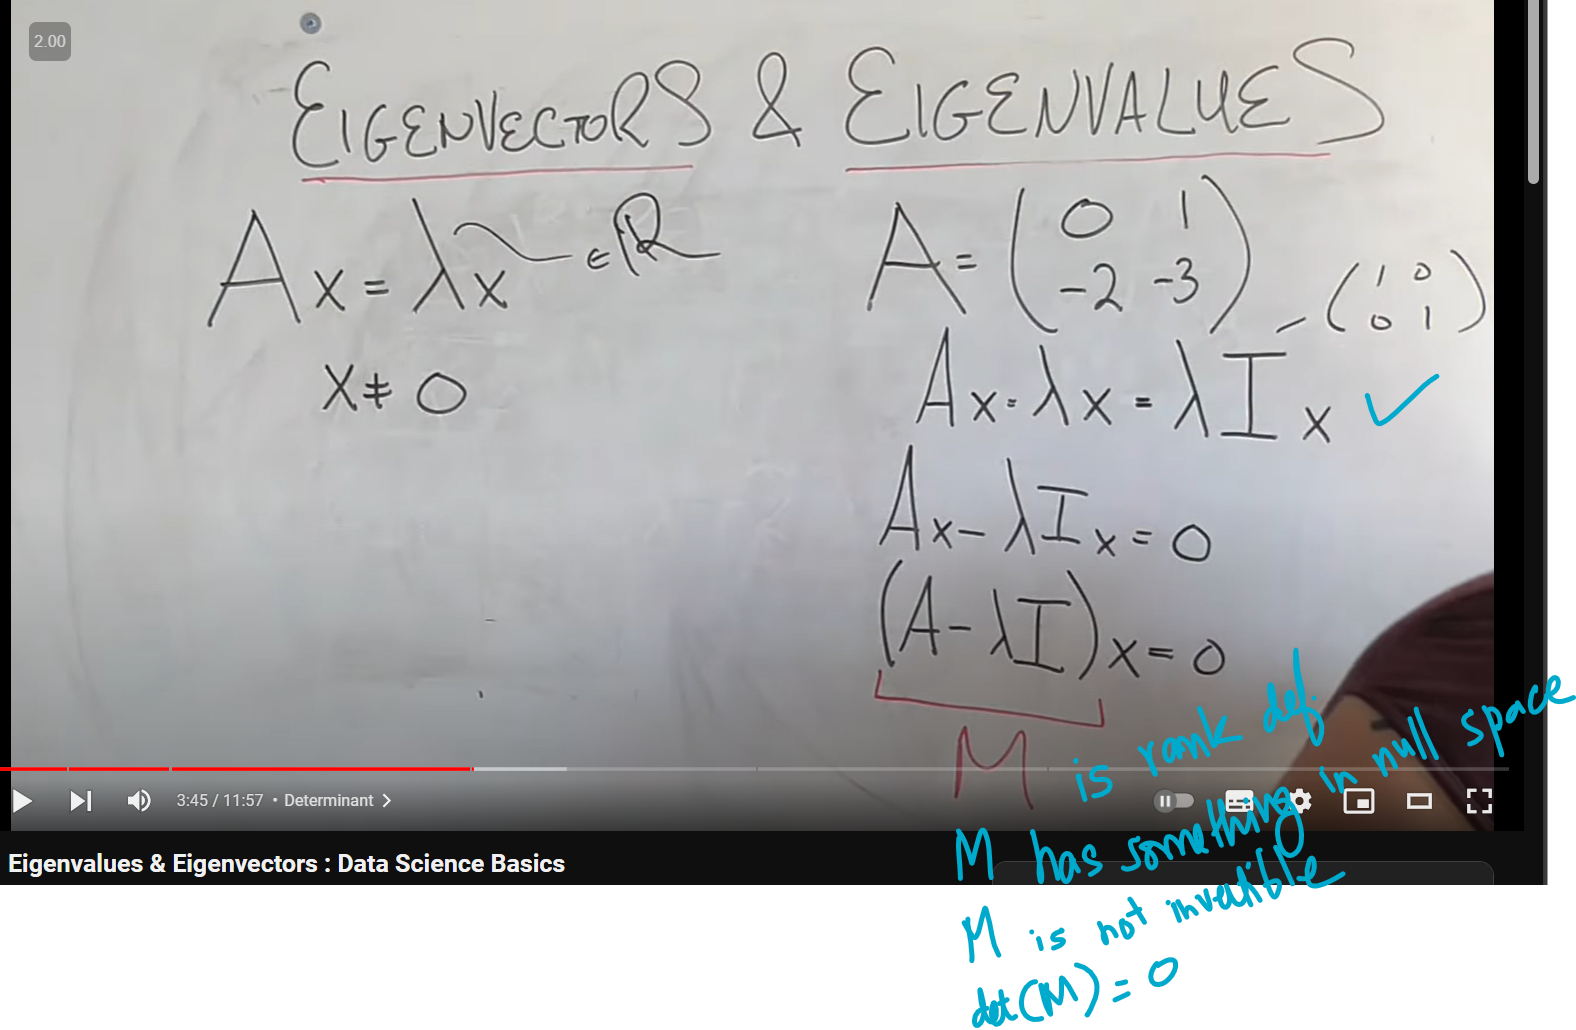 2.00
EIGENVECTORS & EIGENVALUES
Ax = λx ∈ ℝ
x ≠ 0
A = ( 0 1
-2 -3 )
- ( 1 0
0 1 )
Ax = λx = λIx ✓
Ax - λIx = 0
(A - λI)x = 0
M is rank def.
M has something in null space
M is not invertible
det(M) = 0
3:45 / 11:57 • Determinant >
Eigenvalues & Eigenvectors : Data Science Basics